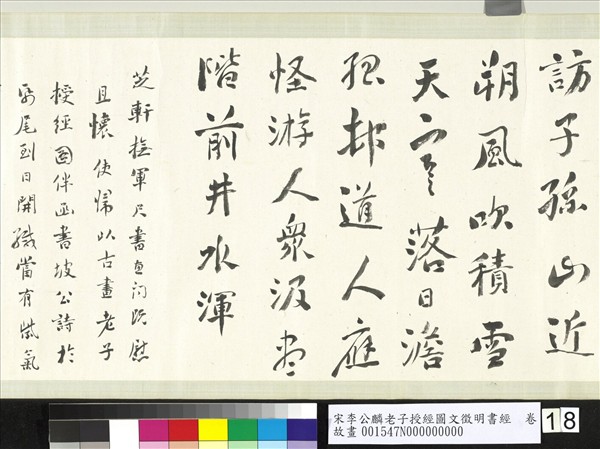 訪子孫山近
朔風吹積雪
天寒落日澹
孤邨道人應
怪游人衆汲盡
階前井水渾
芝軒撫軍尺書垂問既慰
且懷使歸以古畫老子
授經圖伴函書坡公詩於
帋尾到日開緘當有紫氣
宋李公麟老子授經圖文徵明書經 卷
故畫001547N000000000
18